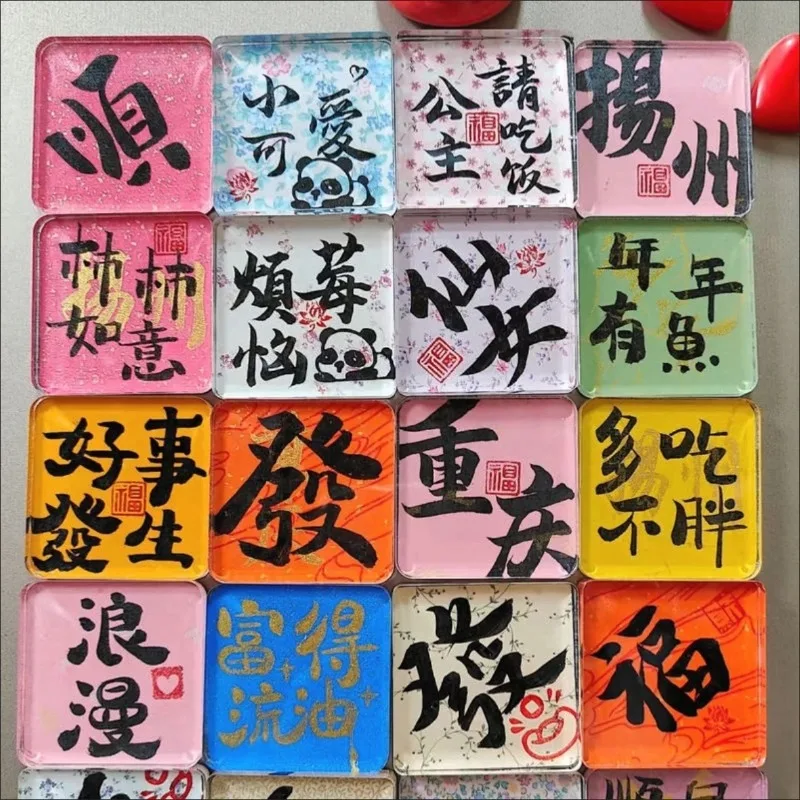 順
小可愛
公主請吃饭
福
揚州
福
柿柿如意
福
莓煩恼
仙女
年年有魚
好事發生
福
發
重庆
福
多吃不胖
浪漫
富得流油
發
福